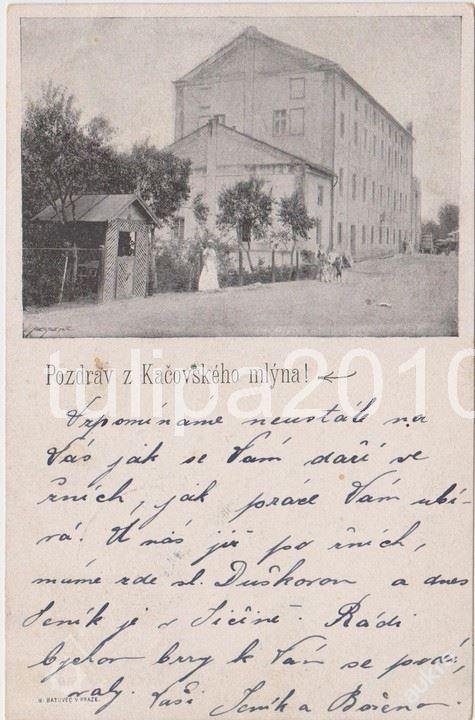 Pozdrav z Kačovského mlýna!
tulipa2010
Vzpomínáme neustále na
Vás jak se Vám daří ve
žních, jak práce Vám ubí-
rá. U nás již po žních,
máme zde sl. Duškovou a dnes
Jeník je v Jičíně. Rádi
bychom brzy k Vám se podí-
valy. Vaši Jeník a Božena
B. BATOVEC V PRAZE.
aukro